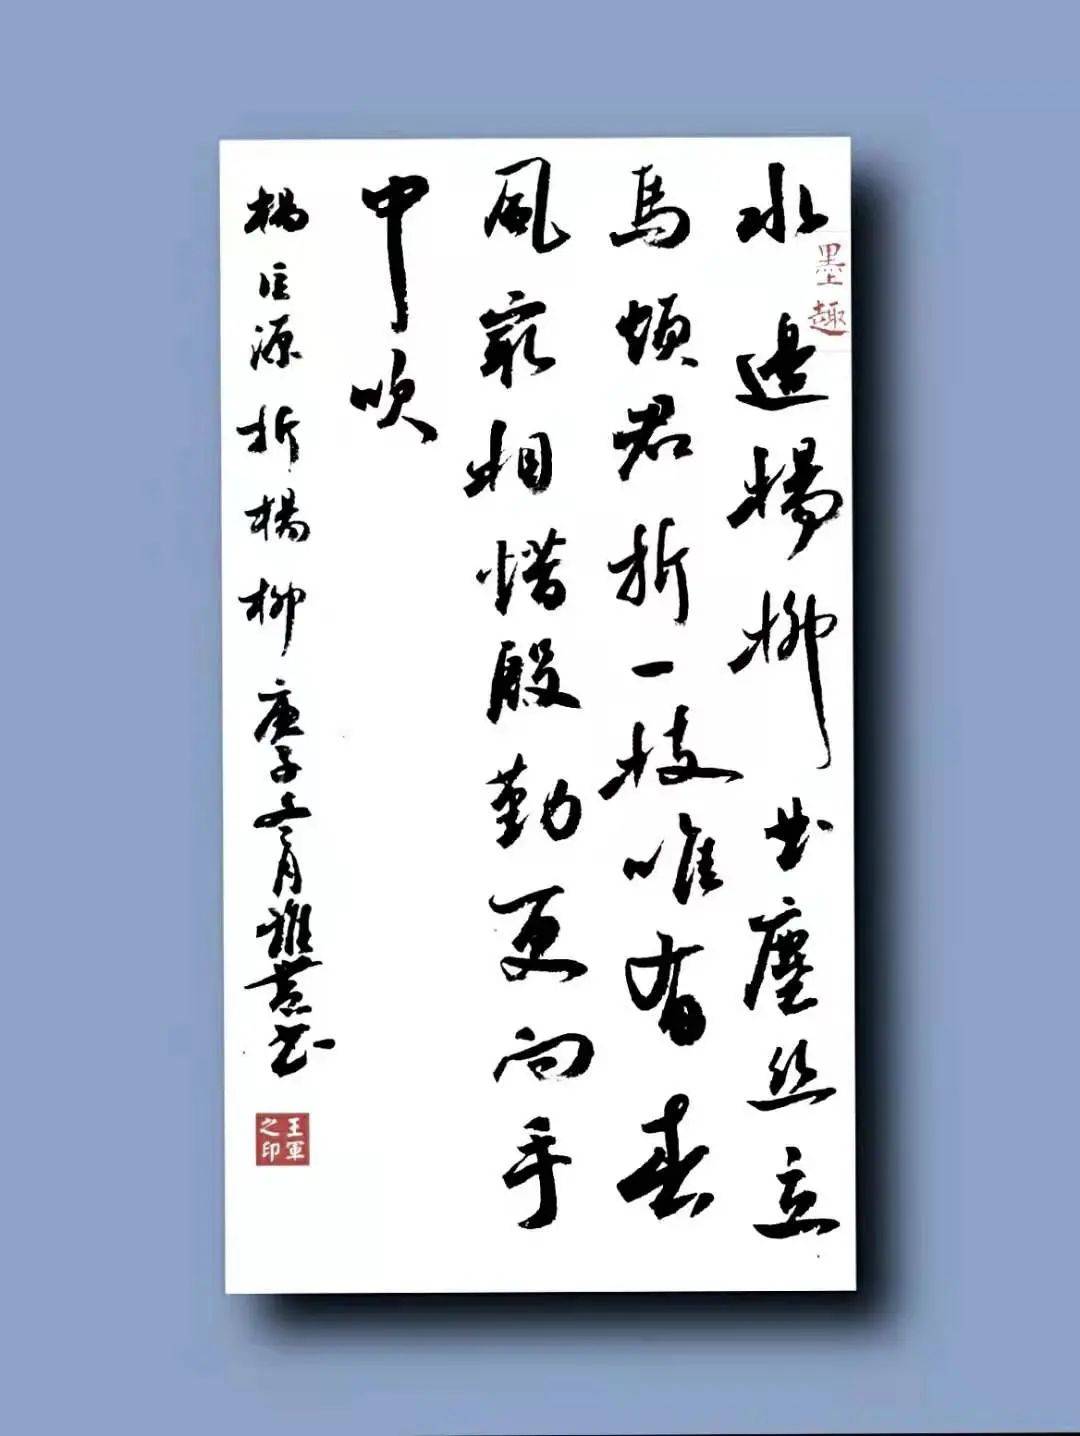 水邊楊柳曲塵丝立
馬煩君折一枝唯有春
風最相惜殷勤更向手
中吹
楊巨源折楊柳庚子 月 書
墨趣
王軍之印